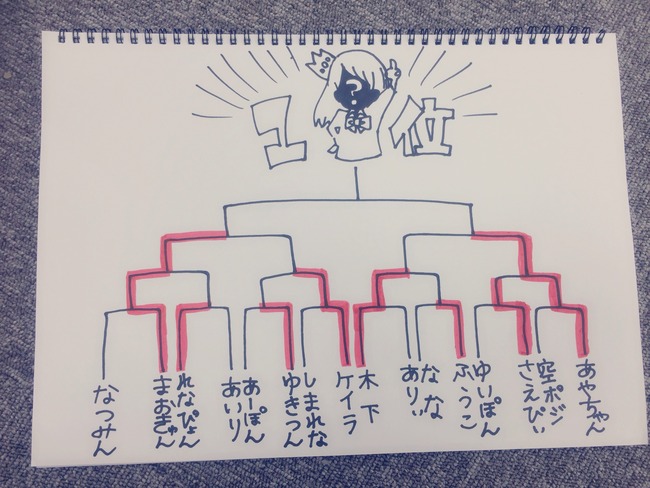 1位
?
なつみん
まおきゅん
れなぴょん
あいり
あーぽん
ゆきつん
しまれな
ケイラ
木下
ありぃ
なな
ふぅこ
ゆいぽん
さえぴぃ
空ポジ
あやちゃん